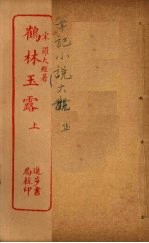 宋羅大經著
鶴林玉露 上
進步書局校印
筆記小說大觀